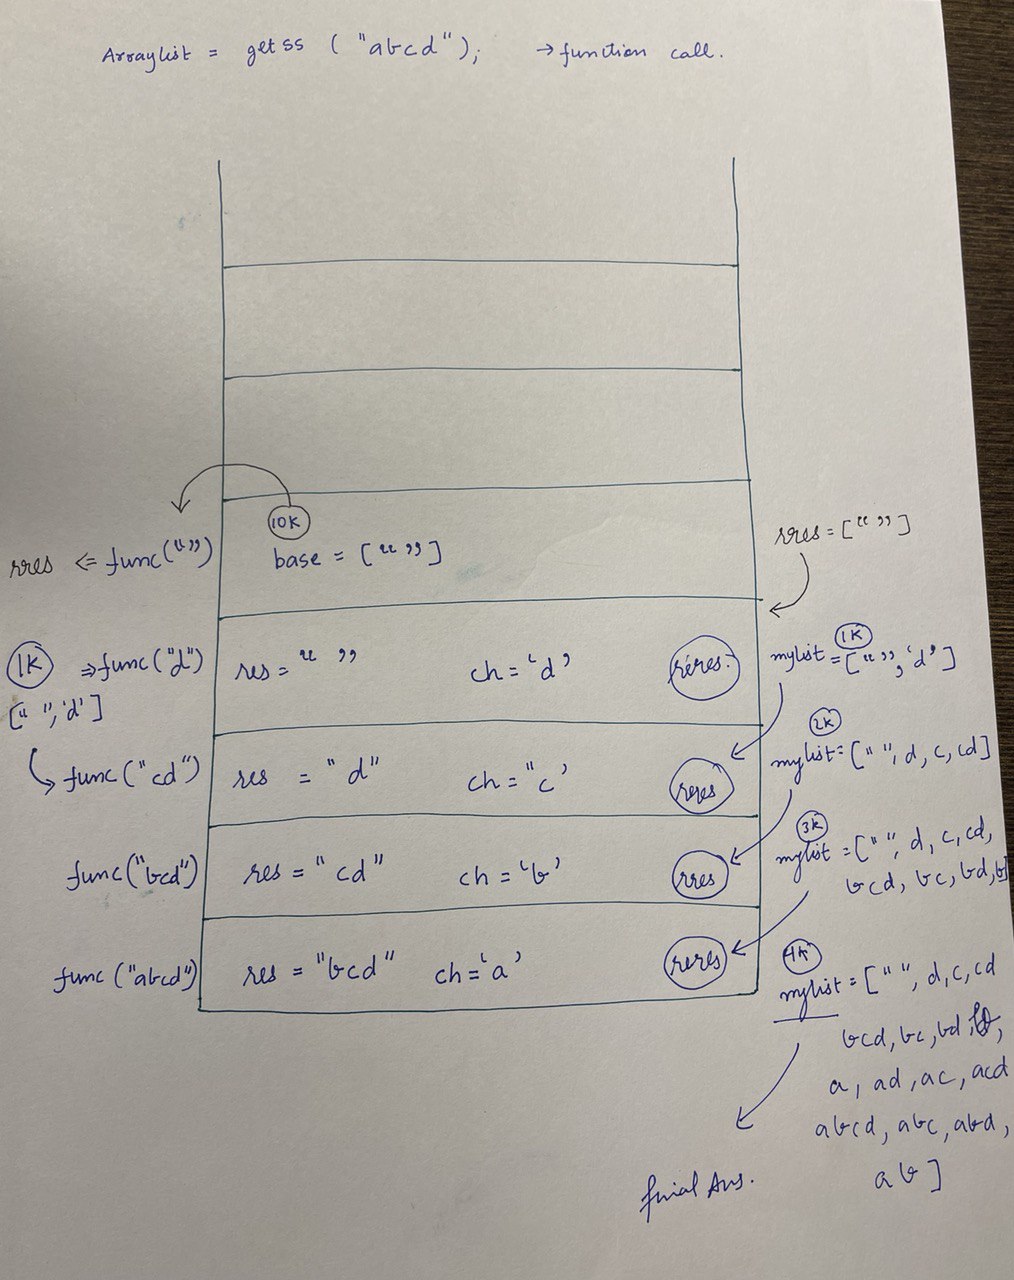 Arraylist = getss ( "abcd"); → function call.
10K
rres = [“ ”]
rres <= func(“”) base = [“ ”]
1K
1K ⇒func("d") res = “ ” ch = ‘d’ rres. mylist = [“ ”, ‘d’]
[“ ”, ‘d’]
2K
func("cd") res = "d" ch = "c’ rres mylist = [" ", d, c, cd]
3K
func("bcd") res = "cd" ch = ‘b’ rres mylist = [" ", d, c, cd,
bcd, bc, bd, b]
4K
func ("abcd") res = "bcd" ch = ‘a’ rres mylist = [" ", d, c, cd
bcd, bc, bd, b,
a, ad, ac, acd
abcd, abc, abd,
ab]
finial Ans.